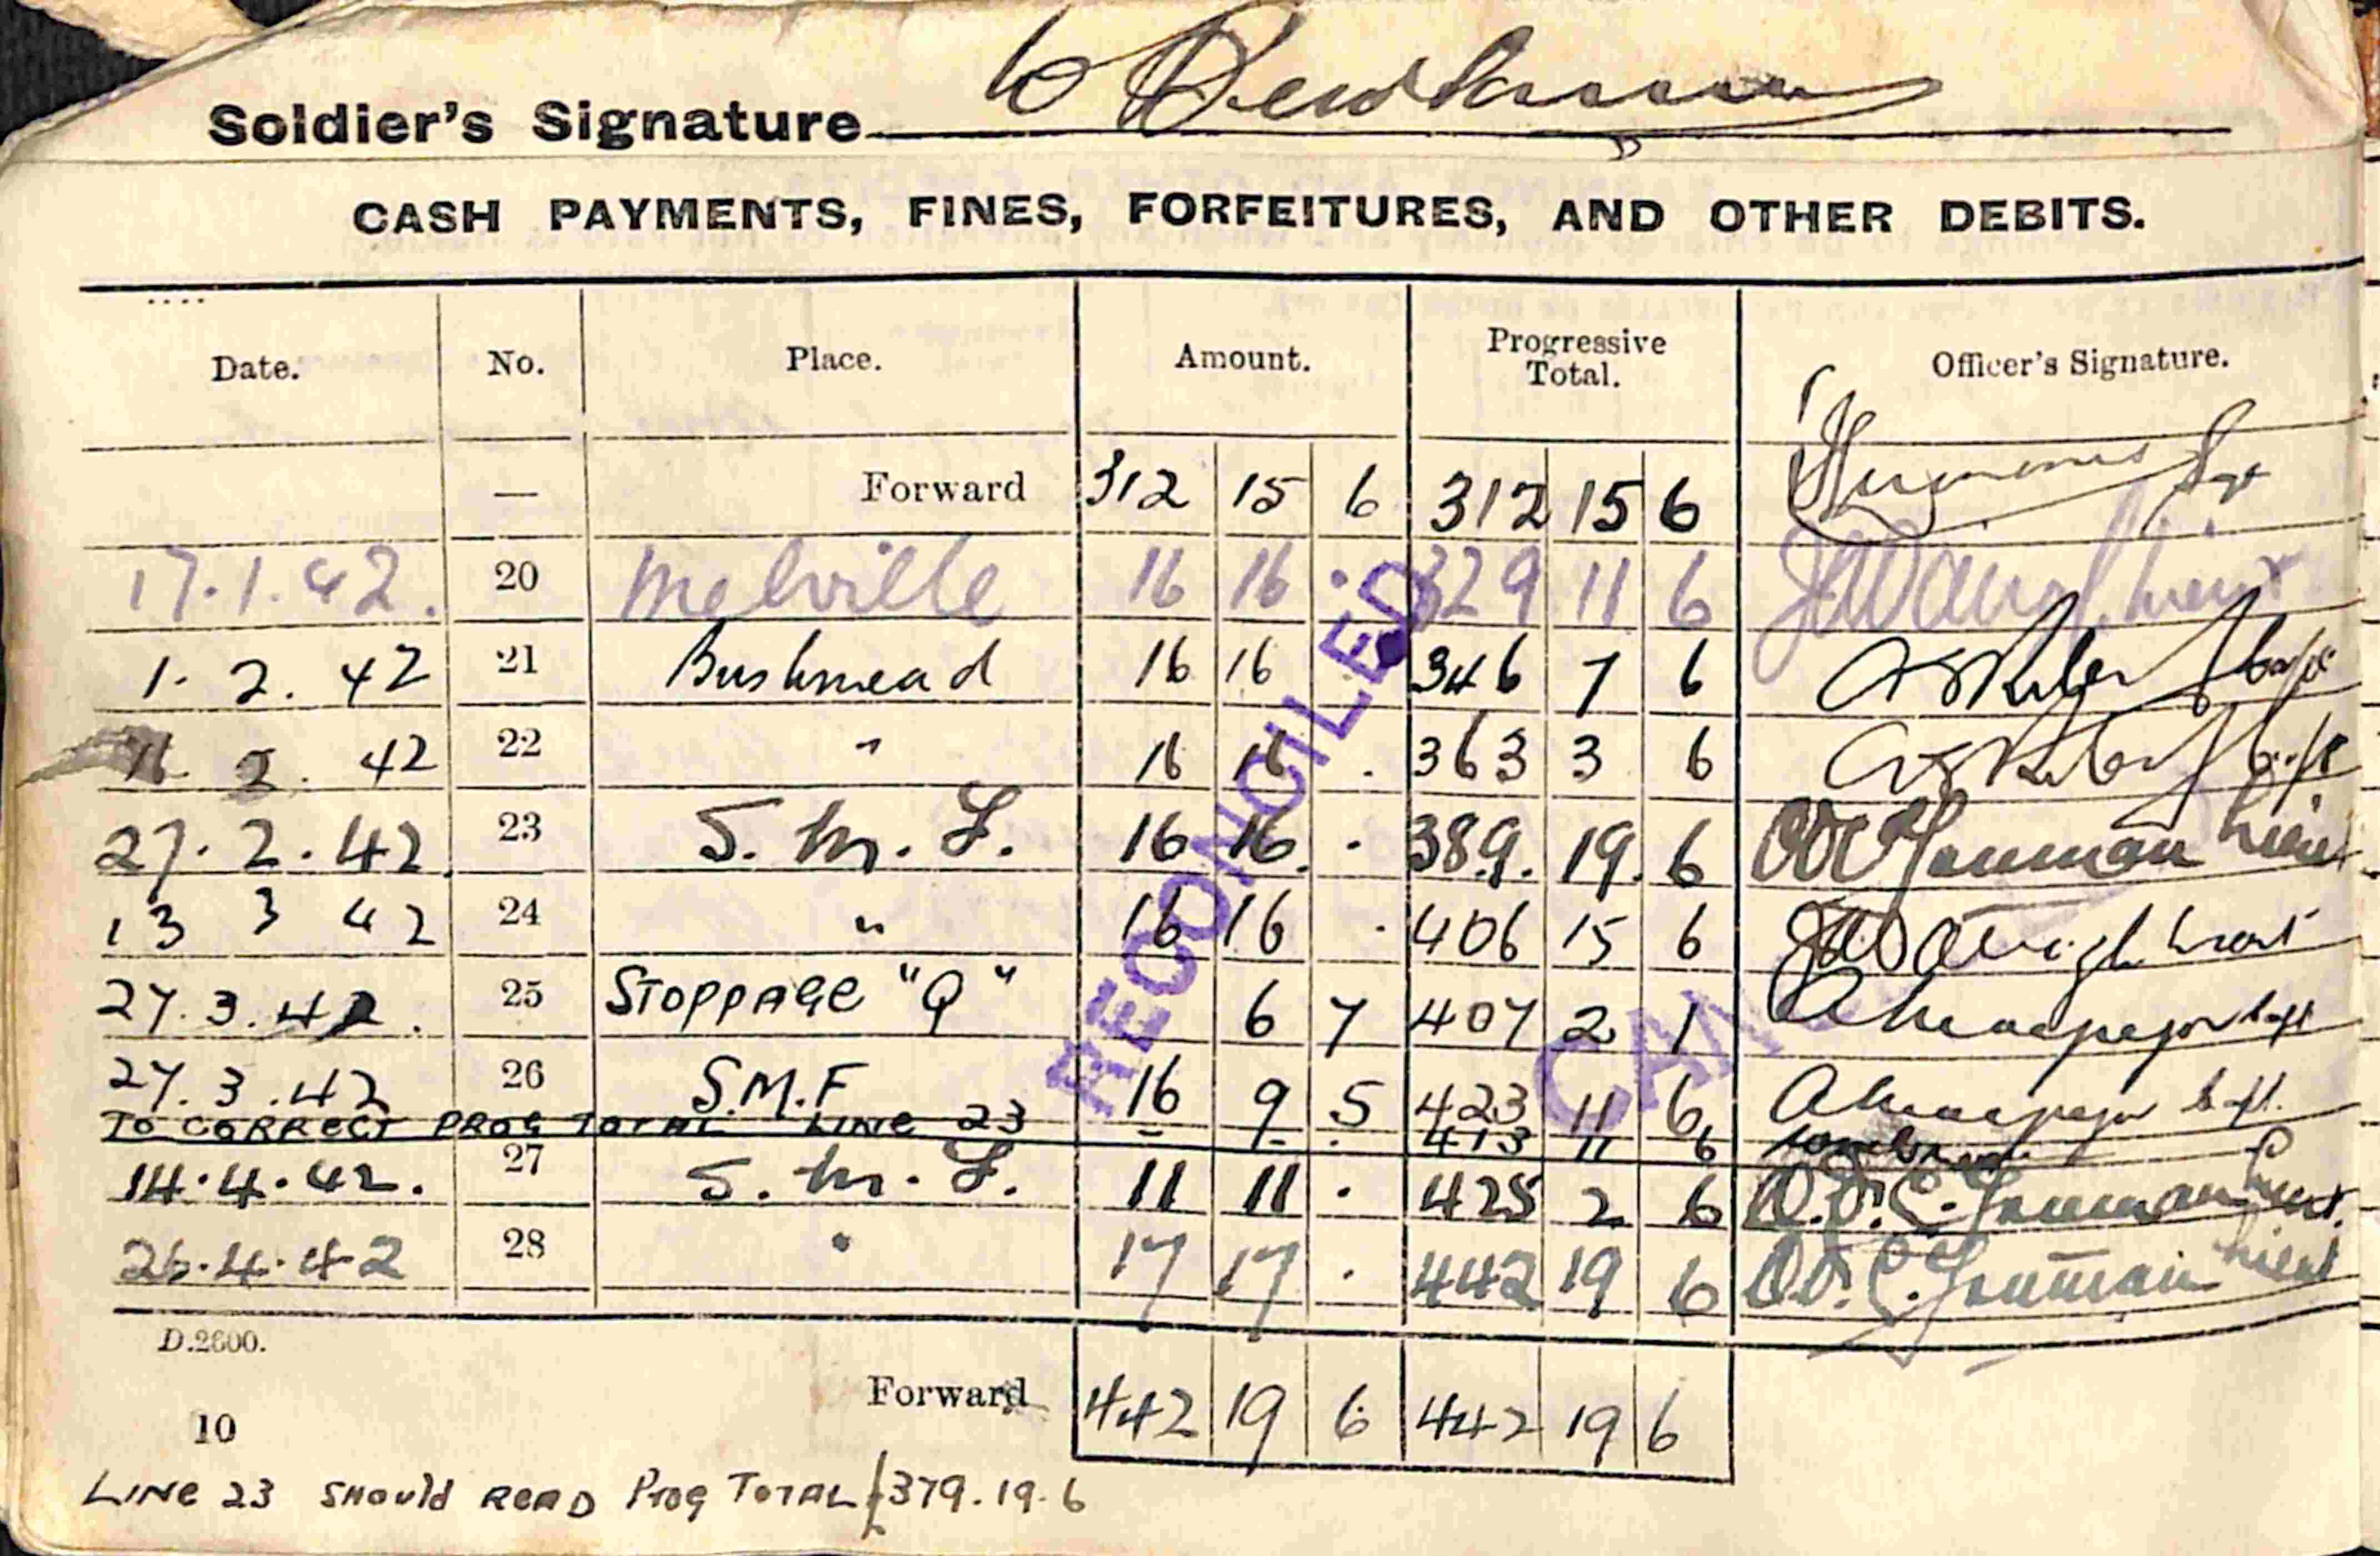 Soldier's Signature
CASH PAYMENTS, FINES, FORFEITURES, AND OTHER DEBITS.
Date. No. Place. Amount. Progressive Total. Officer's Signature.
— Forward 312 15 6 312 15 6
17.1.42. 20 Melville 16 16 . 329 11 6 Lieut
1. 2. 42 21 Bushmead 16 16 346 7 6 Capt
2. 42 22 " 16 16 . 363 3 6 Capt
27.2.42. 23 S.M.F. 16 16. . 389. 19. 6 Lieut
13 3 42 24 " 16 16 . 406 15 6 Lieut
27.3.42. 25 STOPPAGE "Q" 6 7 407 2 1 Capt
27.3.42 26 S.M.F 16 9 5 423 11 6 Capt.
TO CORRECT PROG TOTAL LINE 23 - - . 413 11 6
14.4.42. 27 S.M.F. 11 11 . 425 2 6 Lieut.
26.4.42 28 " 17 17 . 442 19 6 Lieut
D.2600.
Forward 442 19 6 442 19 6
10
LINE 23 SHOULD READ PROG TOTAL £379.19.6
RECONCILED
CAN